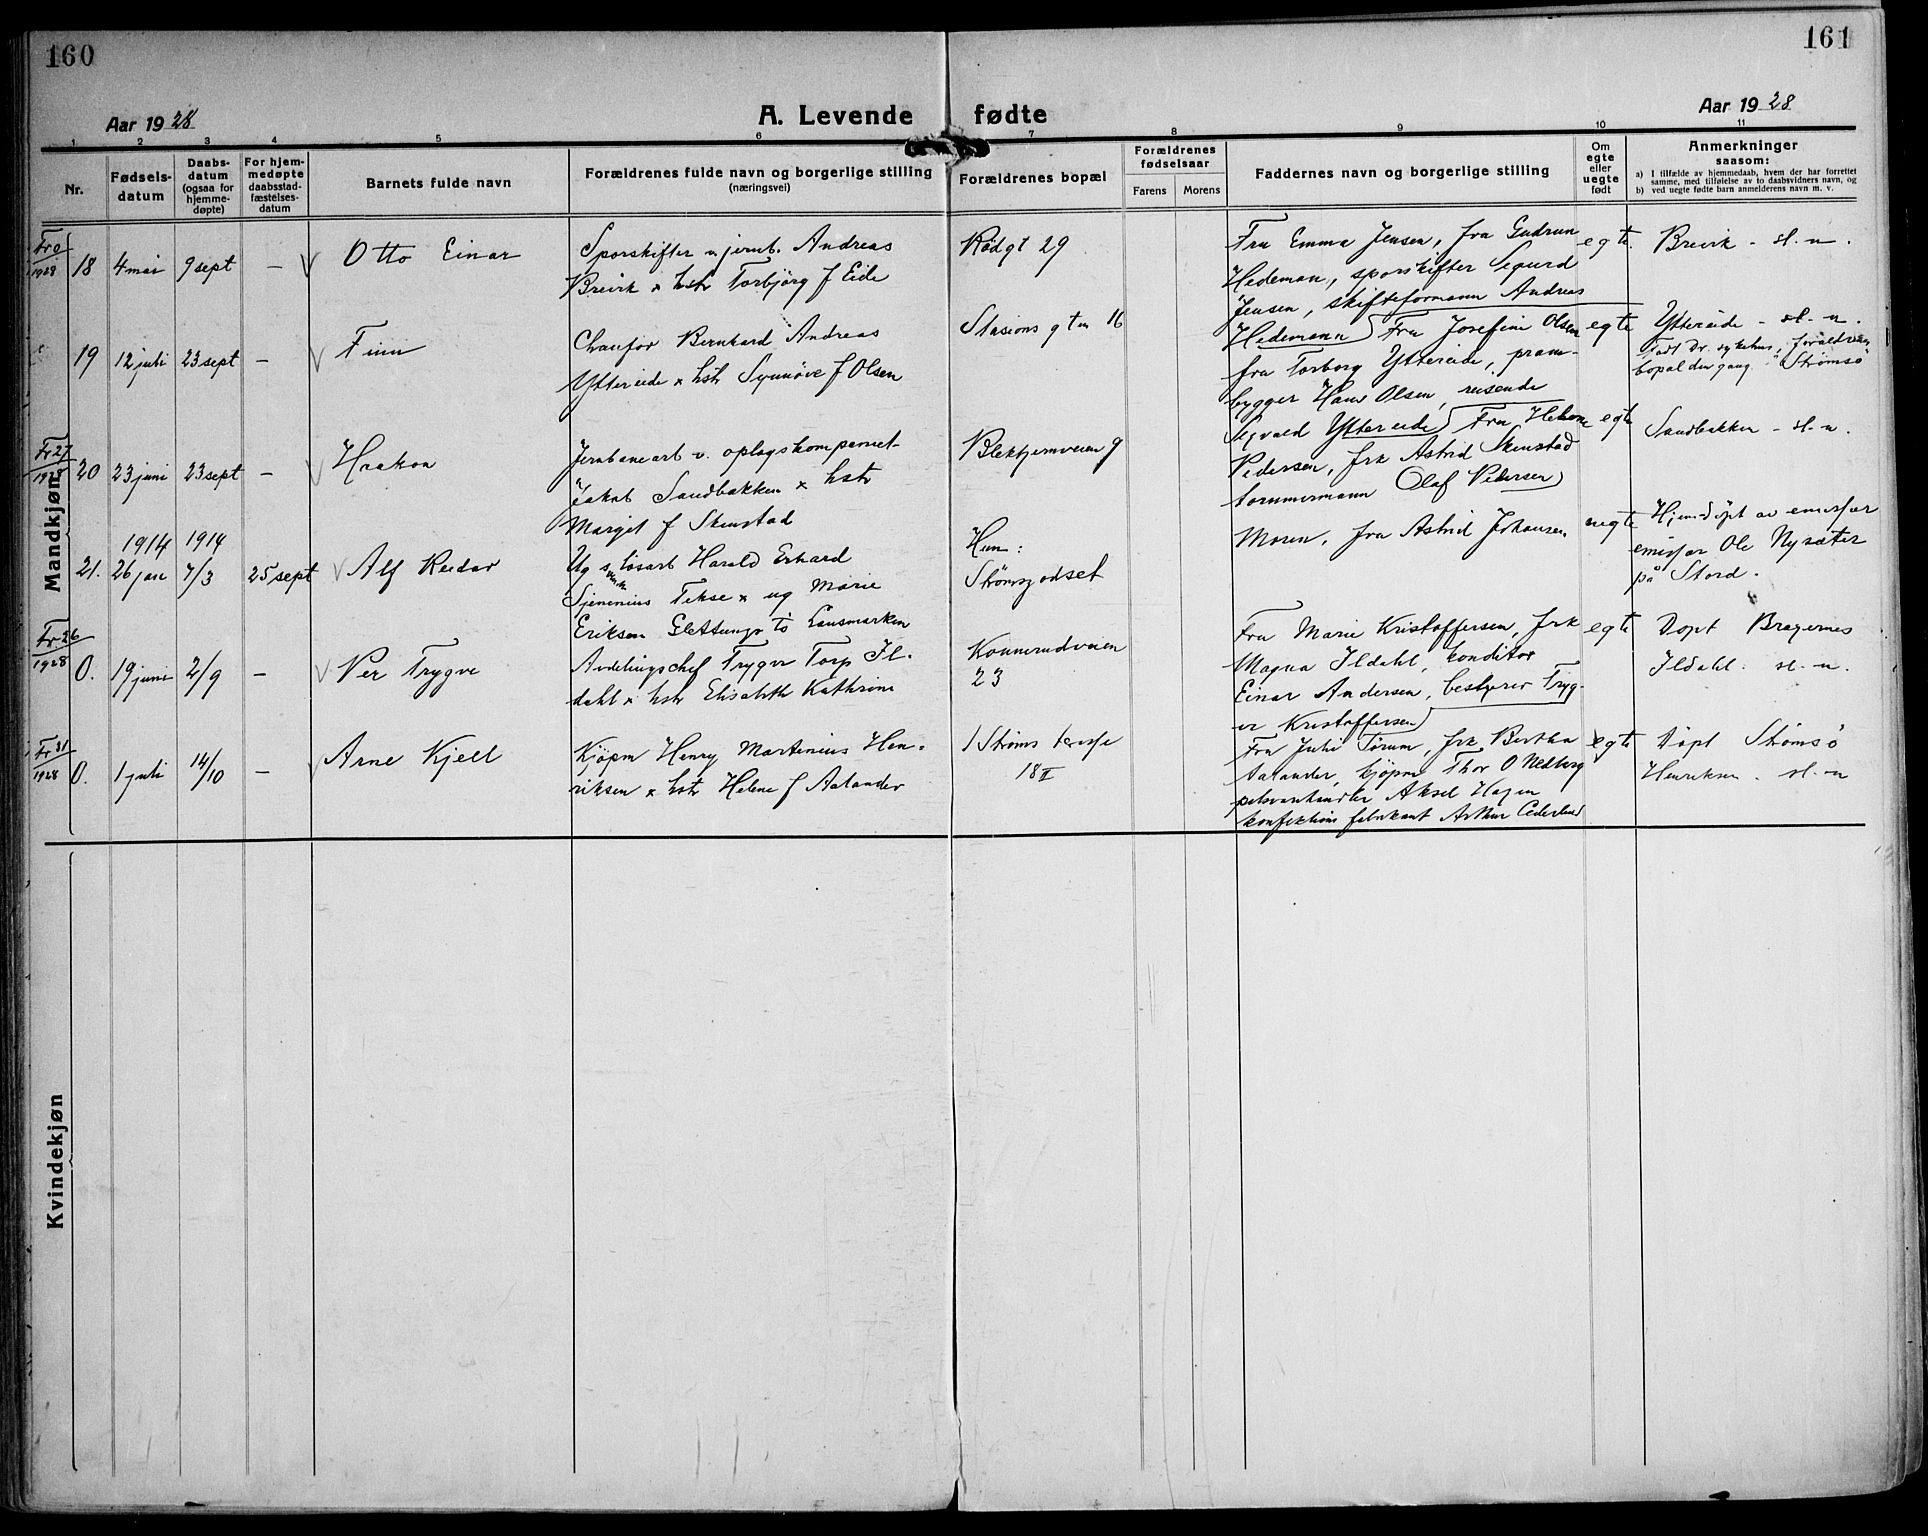 160
161
Aar 1928
A. Levende fødte
Aar 1928
1 2 3 4 5 6 7 8 9 10 11
Nr.
Fødselsdatum
Daabsdatum (ogsaa for hjemmedøpte)
For hjemmedøpte daabsstadfæstelsesdatum
Barnets fulde navn
Forældrenes fulde navn og borgerlige stilling (næringsvei)
Forældrenes bopæl
Forældrenes fødselsaar
Farens Morens
Faddernes navn og borgerlige stilling
Om egte eller uegte født
Anmerkninger saasom:
a) I tilfælde av hjemmedaab, hvem der har forrettet samme, med tilføielse av to daabsvidners navn, og
b) ved uegte fødte barn anmelderens navn m. v.
Mandkjøn
18 4 mai 9 sept – Otto Einar
Sporskifter v jernb. Andreas
Breivik x hstr Torbjörg f Eide
Rödgt 29
Fru Emma Jensen, fra Gudrun
Hedeman, sporskifter Sigurd
Jensen, skifteformann Andreas
Hedemann
egte
Breivik – sl. n.
19 12 juli 23 sept – Finn
Chauför Bernhard Andreas
Yttereide x hstr Synnöve f Olsen
Stasions gtn 16
Fru Josefine Olsen
fra Torborg Yttereide, pram-
bygger Hans Olsen, reisende
Sigvald Yttereide
egte
Yttereide – sl. n.
Født Dr. sykehus, foreldrenes
bopæl den gang Strømsö
Fr 27/1928
20 23 juni 23 sept – Haakon
Jernbanearb v. oplagskompaniet
Jakob Sandbakken x hstr
Margit f Skinstad
Blekkjemveien 9
Fru Helene
Pedersen, frk Astrid Skinstad
tømmermann Olaf Pedersen
egte
Sandbakken – sl. n.
21. 1914 26 jan 1914 7/3 25 sept Alf Reidar
Ug s. løsarb Harald Erhard
Tekse x ug Marie
Eriksen
Hun:
Strømsgodset
Moren, fra Astrid Johansen
uegte
Hjemdöpt av emissær
emissær Ole Nysæter
på Stord.
Fr 26/1928
0. 19 juni 2/9 – Per Trygve
Avdelingschef Trygve Torp Il-
dahl x hstr Elisabeth Kathrine
Konnerudveien
23
Fru Marie Kristoffersen, frk
Magna Ildahl, konditor
Einar Andersen, bestyrer Tryg-
ve Kristoffersen
egte
Döpt Bragernes
Ildahl. sl. n.
Fr 31/1928
0. 1 juli 14/10 – Arne Kjell
Kjöpm Henry Martinius Hen-
riksen x hstr Helene f Aalander
1 Ströms terrasse
18 II
Fru Julie Törum, frk Bertha
Aalander, kjöpm Thor O Nedberg
pelsvarehandler Aksel Hagen
konfektions fabrikant Arthur Cederlund
egte
Döpt Strømsö
Henriksen. sl. n
Kvindekjøn